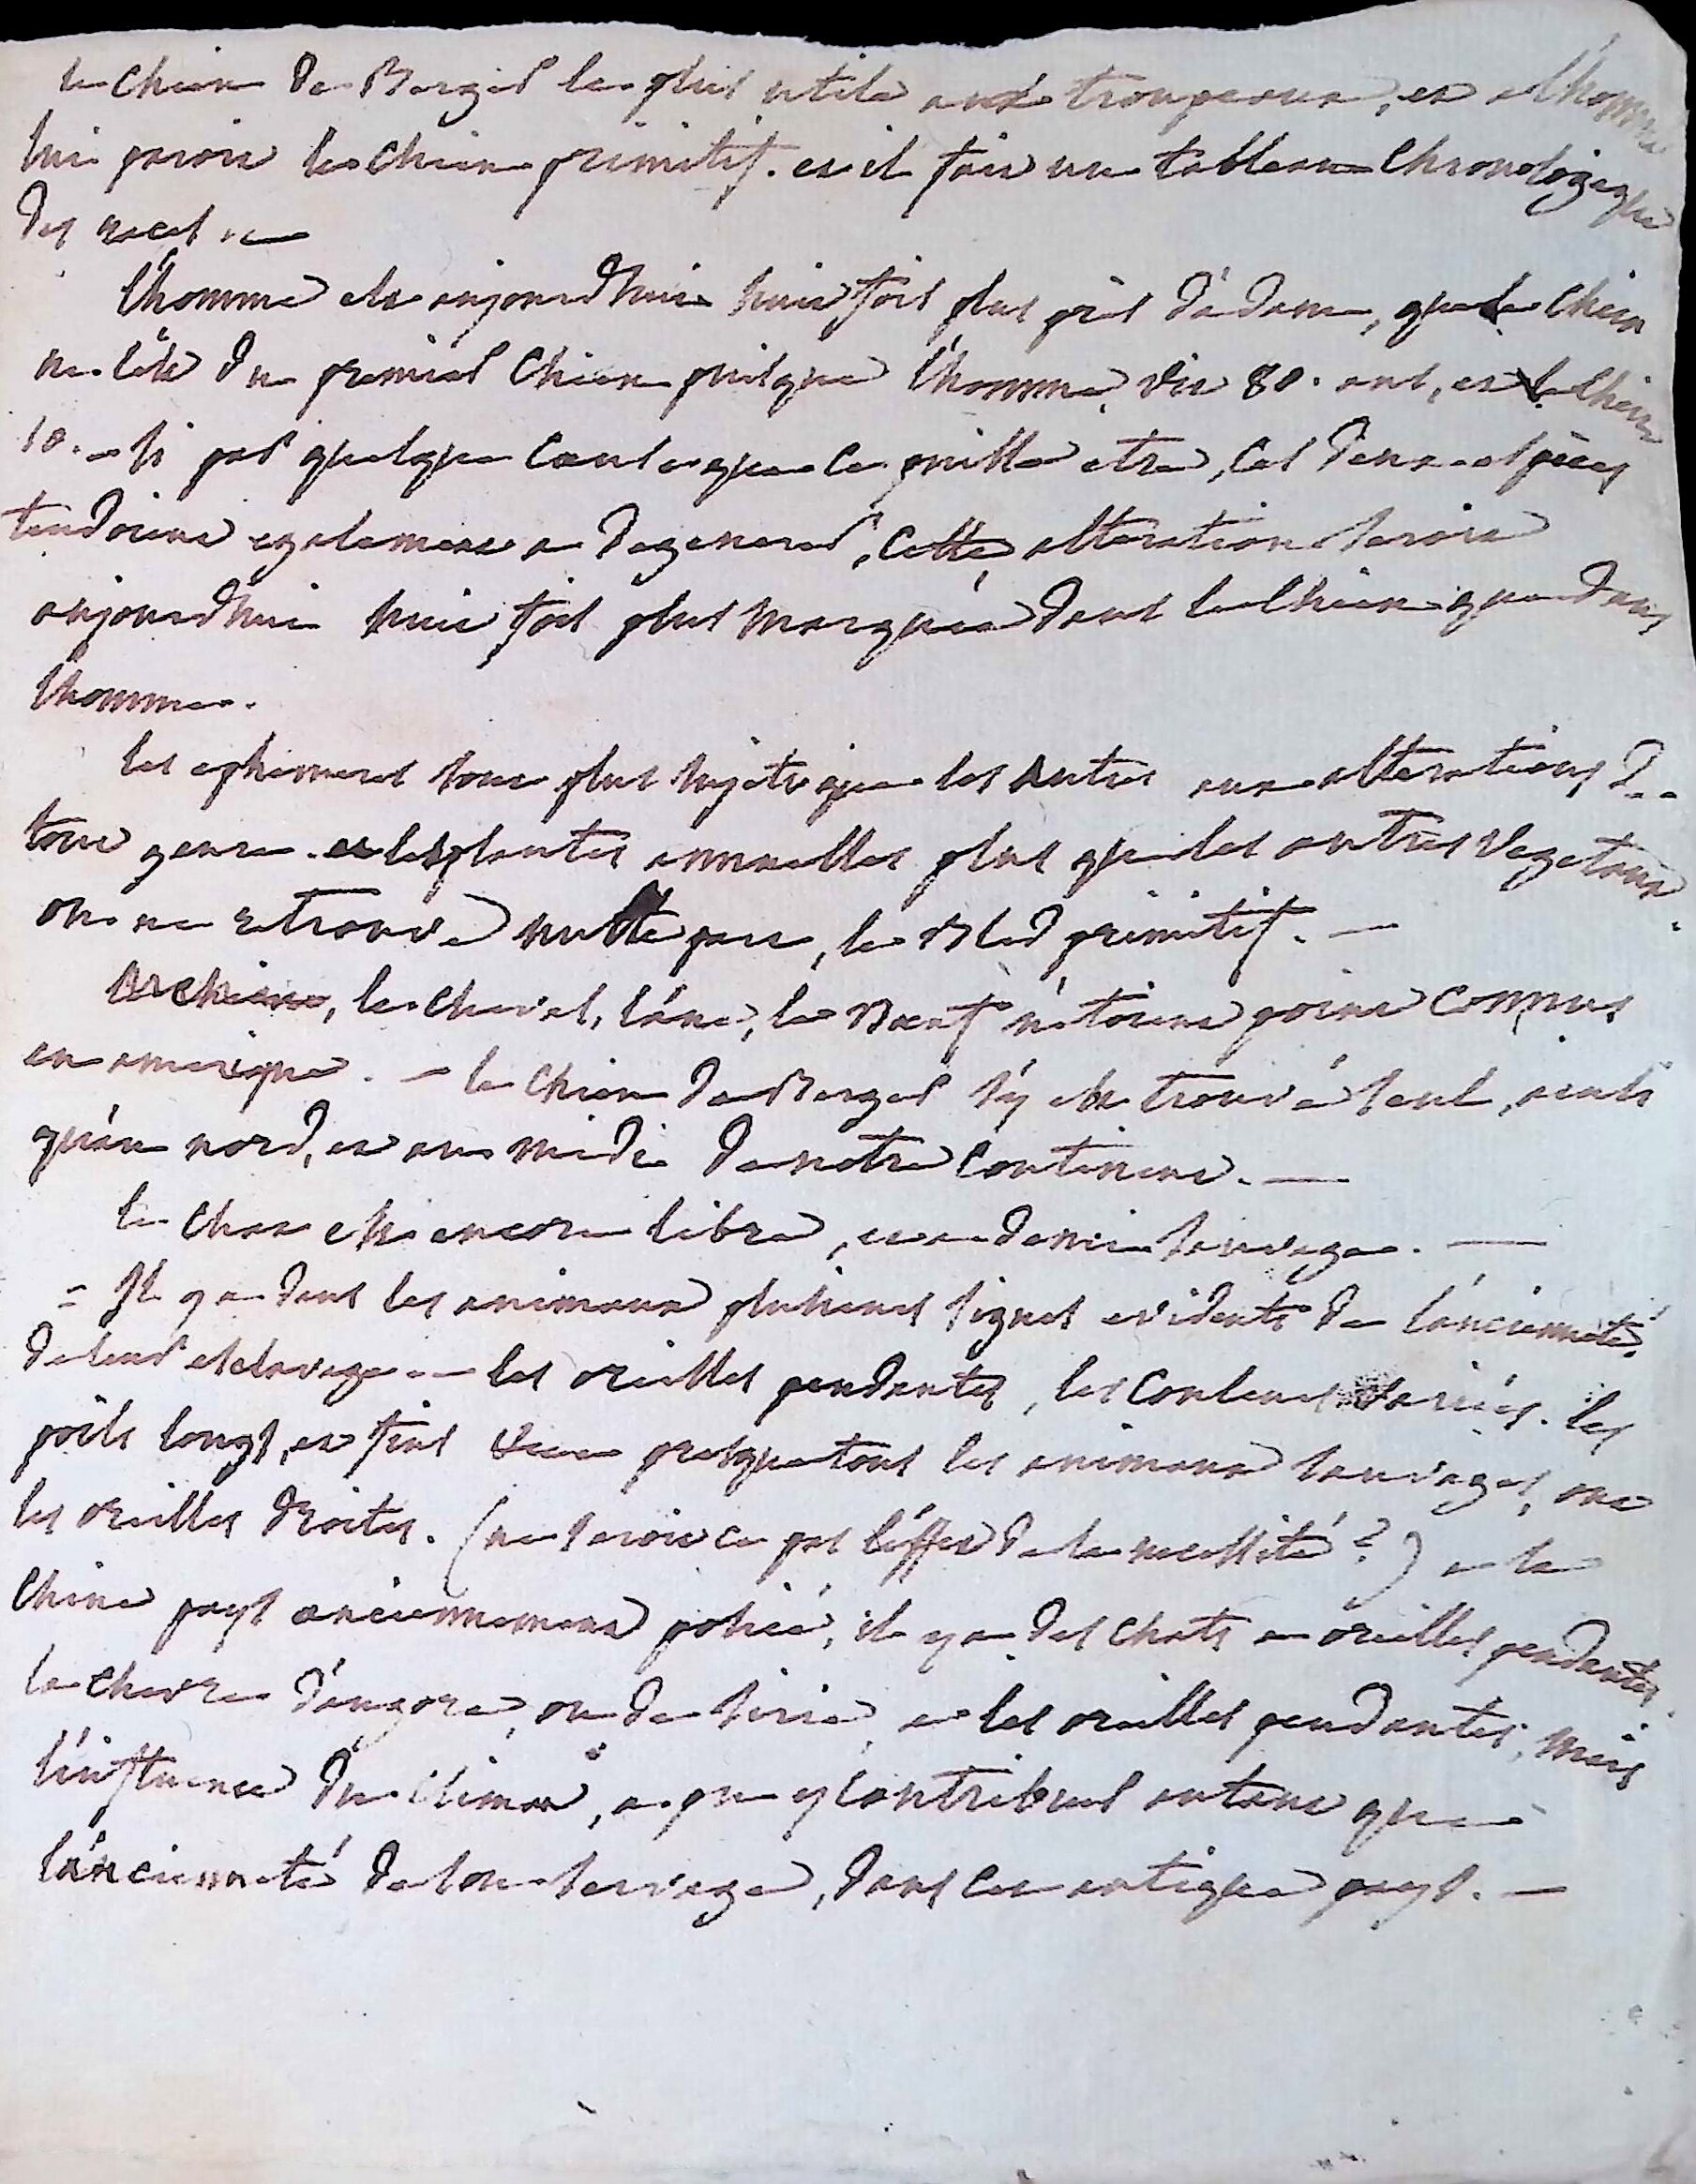 le chien de Berger le plus utile aux troupeaux, et a l'homme
lui paroit le chien primitif. et il fait un tableau chronologique
des races.
l'homme est aujourdhuy huit fois plus près d'adam, que le chien
ne l'est du premier chien puisque l'homme vit 80. ans, et le chien
10. – si par quelque cause que ce puisse etre, ces deux especes
tendoient egalement a degenerer, cette alteration seroit
aujourdhui huit fois plus marquée dans le chien que dans
l'homme.
les ephemeres sont plus sujets que les autres aux alterations de
tout genre. et les plantes annuelles plus que les autres vegetaux.
on ne retrouve nulle part, le Bled primitif. –
le chien, le cheval, l'ane, le Bœuf n'etoient point connus
en amerique. – le chien de Berger s'y est trouvé seul, ainsi
qu'au nord, et au midi de notre continent. –
le chat est encore libre, et a demi sauvage. –
= Il y a dans les animaux plusieurs signes evidents de l'ancienneté
de leur esclavage. – les oreilles pendantes, les couleurs variées. les
poils longs, et fins presque tous les animaux sauvages, ont
les oreilles droites. (ne seroit ce pas l'effet de la necessité ?) a la
Chine pays anciennement policé, il y a des chats a oreilles pendantes.
la chevre d'angora, ou de sirie, a les oreilles pendantes, mais
l'influence du climat, a pu y contribuer autant que
l'ancienneté de son servage, dans cet antique pays. –